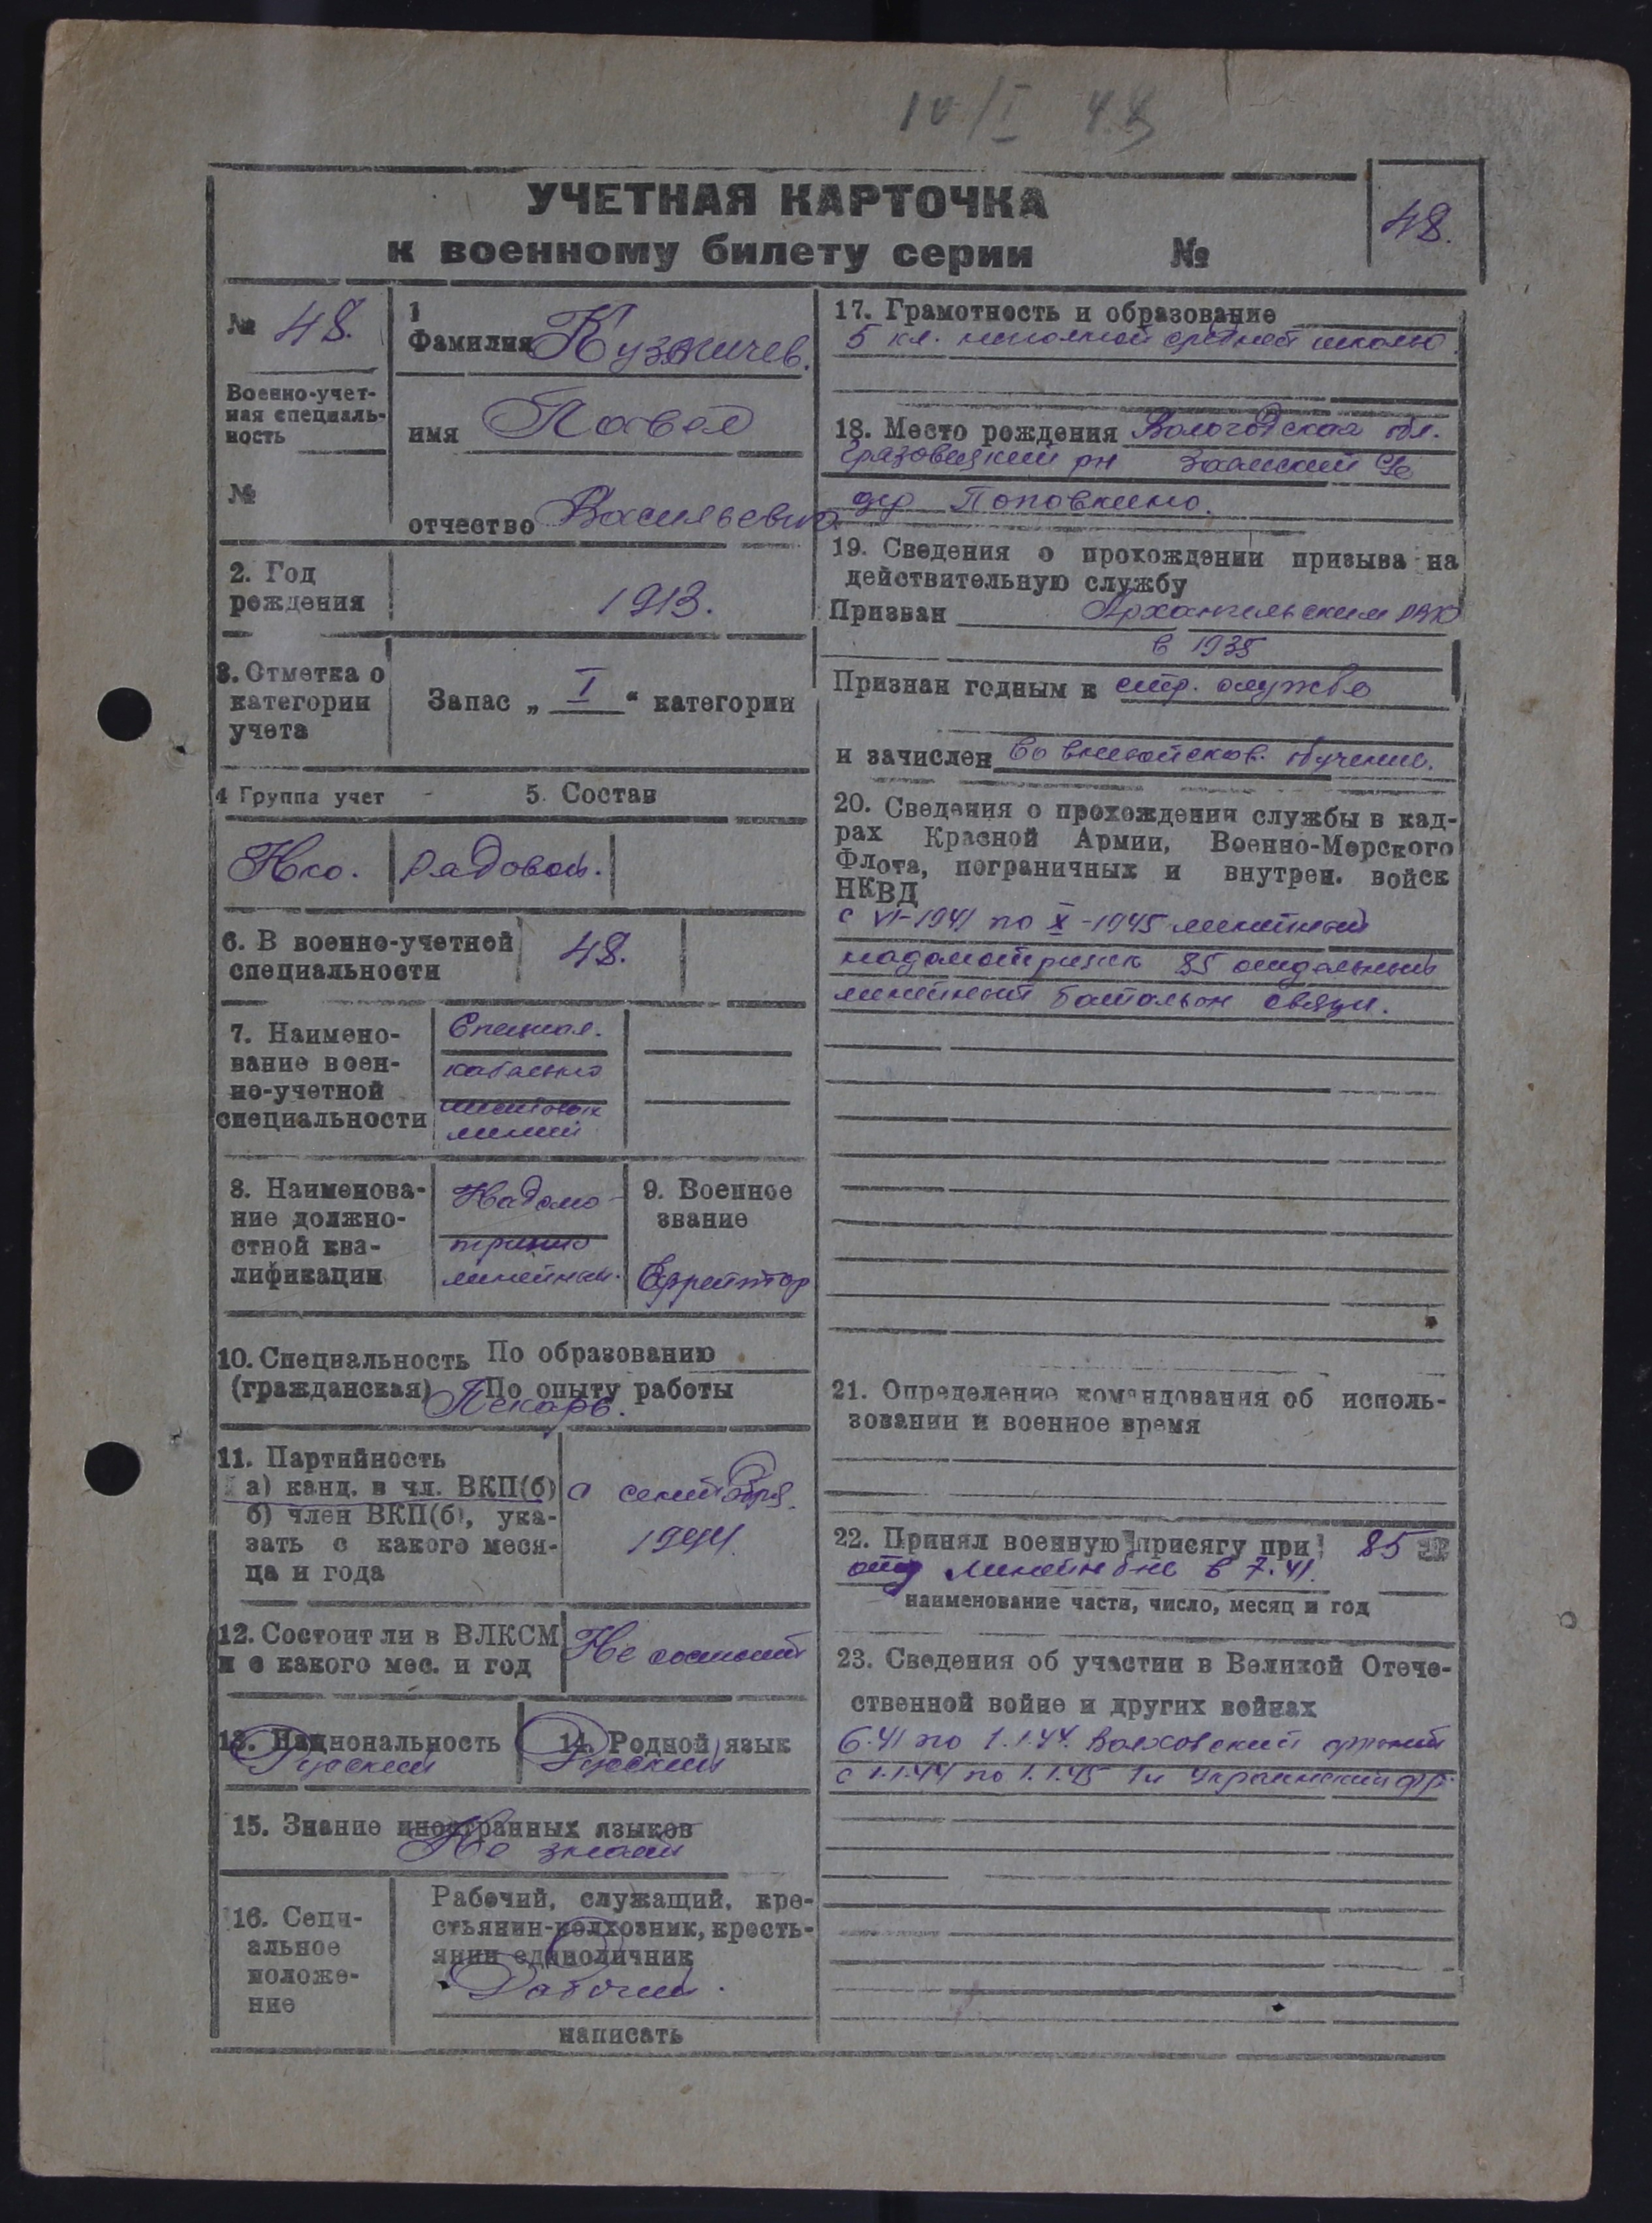 10/I 48
УЧЕТНАЯ КАРТОЧКА
48.
к военному билету серии №
№ 48.
Военно-учет-
ная специаль-
ность
№
1
Фамилия Кузмичев.
имя Павел
отчество Васильевич
2. Год
рождения
1913.
3. Отметка о
категории
учета
Запас „ I “ категории
4 Группа учет
5. Состав
Нко. Рядовой.
6. В военно-учетной
специальности
48.
7. Наимено-
вание воен-
но-учетной
специальности
Специал.
кабельно
шестовых
линий
8. Наименова-
ние должно-
стной ква-
лификации
Надсмо
трщик
линейный.
9. Военное
звание
Ефрейтор
10. Специальность По образованию
(гражданская) По опыту работы
Пекарь.
11. Партийность
а) канд. в чл. ВКП(б)
б) член ВКП(б), ука-
зать с какого меся-
ца и года
с сентября
1944.
12. Состоит ли в ВЛКСМ
и с какого мес. и год
Не состоит
13. Национальность
Русский
14. Родной язык
Русский
15. Знание иностранных языков
Не знает
16. Соци-
альное
положе-
ние
Рабочий, служащий, кре-
стьянин-колхозник, кресть-
янин единоличник
Рабочий.
написать
17. Грамотность и образование
5 кл. неполной средней школы
18. Место рождения Вологодская обл.
Грязовецкий рн с/с
дер Поповкино.
19. Сведения о прохождении призыва на
действительную службу
Призван Архангельским РВК
в 1935
Признан годным к стр. службе
и зачислен во вневойсков. обучение.
20. Сведения о прохождения службы в кад-
рах Красной Армии, Военно-Морского
Флота, пограничных и внутрен. войск
НКВД
с VI-1941 по X-1945 линейный
надсмотрщик 85 отдельный
линейный батальон связи.
21. Определение командования об исполь-
зовании в военное время
22. Принял военную присягу при 85
отд линейн б-не в 7.41.
наименование части, число, месяц и год
23. Сведения об участии в Великой Отече-
ственной войне и других войнах
6.41 по 1.1.44. Волховский фронт
с 1.1.44 по 1.1.45 1й Украинский фр.